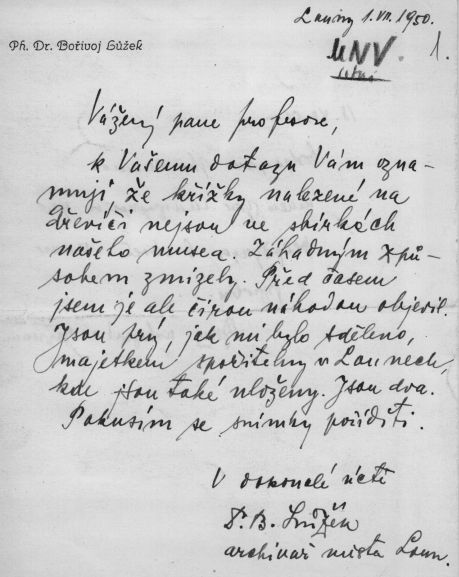 Louny 1.VII.1950.
Ph. Dr. Bořivoj Lůžek
MNV. 1.
Vážený pane profesore,
k Vašemu dotazu Vám ozna-
muji že křížky nalezené na
Dřevíči nejsou ve sbírkách
našeho musea. Záhadným způ-
sobem zmizely. Před časem
jsem je ale čirou náhodou objevil.
Jsou prý, jak mi bylo sděleno,
majetkem spořitelny v Lounech,
kde jsou také uloženy. Jsou dva.
Pokusím se snímky poříditi.
V dokonalé úctě
Dr. B. Lůžek
archivář města Loun.